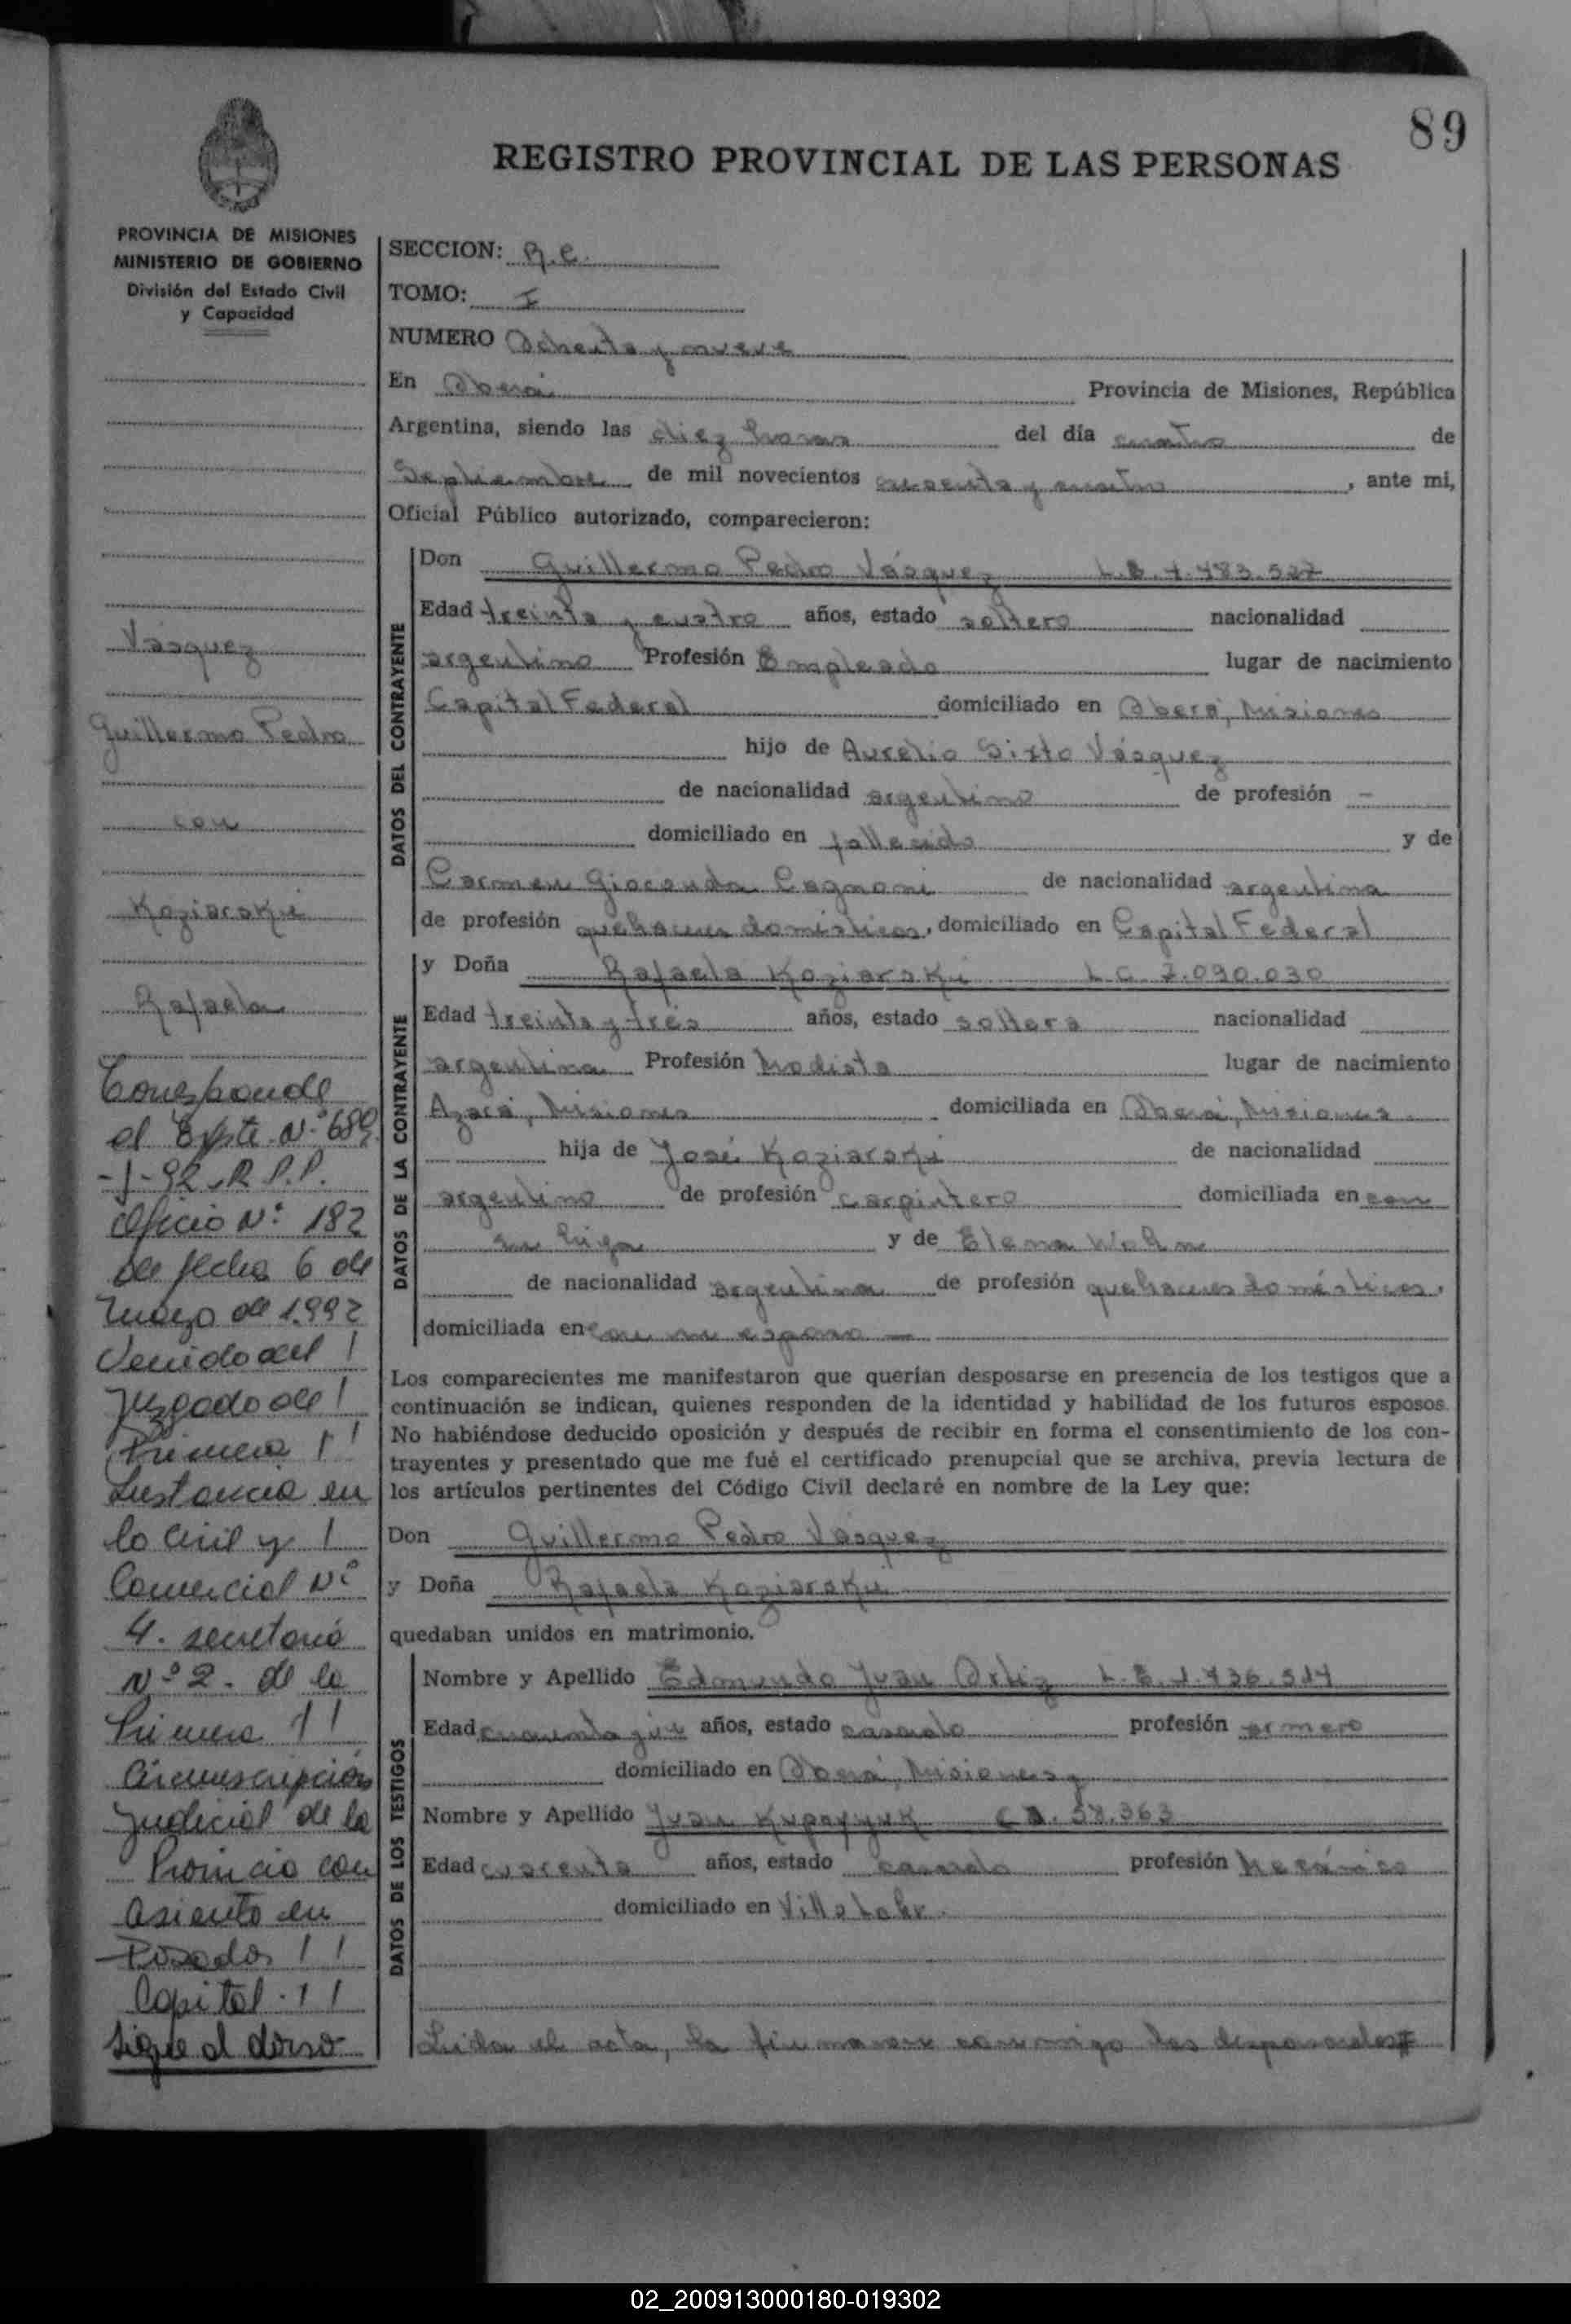 89
REGISTRO PROVINCIAL DE LAS PERSONAS
PROVINCIA DE MISIONES
MINISTERIO DE GOBIERNO
División del Estado Civil
y Capacidad
Vásquez
Guillermo Pedro
con
Koziarski
Rafaela
Corresponde
el Expte. Nº 689
-1-92 R.P.P.
Oficio Nº 182
de fecha 6 de
marzo de 1.992
Venido del
Juzgado de
Primera
Instancia en
lo Civil y
Comercial Nº
4. secretaría
Nº 2. de la
Primera
Circunscripción
Judicial de la
Provincia con
asiento en
Posadas
Capital.
Sigue al dorso
SECCION: R.C.
TOMO: I
NUMERO Ochenta y nueve
En Oberá Provincia de Misiones, República
Argentina, siendo las diez horas del día cuatro de
Septiembre de mil novecientos sesenta y cuatro, ante mi,
Oficial Público autorizado, comparecieron:
DATOS DEL CONTRAYENTE
Don Guillermo Pedro Vásquez L.E. 483.527
Edad treinta y cuatro años, estado soltero nacionalidad
argentino Profesión Empleado lugar de nacimiento
Capital Federal domiciliado en Oberá, Misiones
hijo de Aurelio Sixto Vásquez
de nacionalidad argentino de profesión -
domiciliado en fallecido y de
Carmen Gioconda Cagnoni de nacionalidad argentina
de profesión quehaceres domésticos, domiciliado en Capital Federal
DATOS DE LA CONTRAYENTE
y Doña Rafaela Koziarski L.C. 7.090.030
Edad treinta y tres años, estado soltera nacionalidad
argentina Profesión Modista lugar de nacimiento
Azara, Misiones domiciliada en Oberá, Misiones
hija de José Koziarski de nacionalidad
argentino de profesión carpintero domiciliada en con
su hija y de Elena Wohn
de nacionalidad argentina de profesión quehaceres domésticos,
domiciliada en con su esposo —
Los comparecientes me manifestaron que querían desposarse en presencia de los testigos que a
continuación se indican, quienes responden de la identidad y habilidad de los futuros esposos.
No habiéndose deducido oposición y después de recibir en forma el consentimiento de los con-
trayentes y presentado que me fué el certificado prenupcial que se archiva, previa lectura de
los artículos pertinentes del Código Civil declaré en nombre de la Ley que:
Don Guillermo Pedro Vásquez
y Doña Rafaela Koziarski
quedaban unidos en matrimonio.
DATOS DE LOS TESTIGOS
Nombre y Apellido Edmundo Juan Ortiz L.E. 1.436.514
Edad años, estado casado profesión armero
domiciliado en Oberá, Misiones y
Nombre y Apellido Juan 58.363
Edad cuarenta años, estado casado profesión Mecánico
domiciliado en Villa
Leida el acta, la firmaron conmigo los desposados
02_200913000180-019302